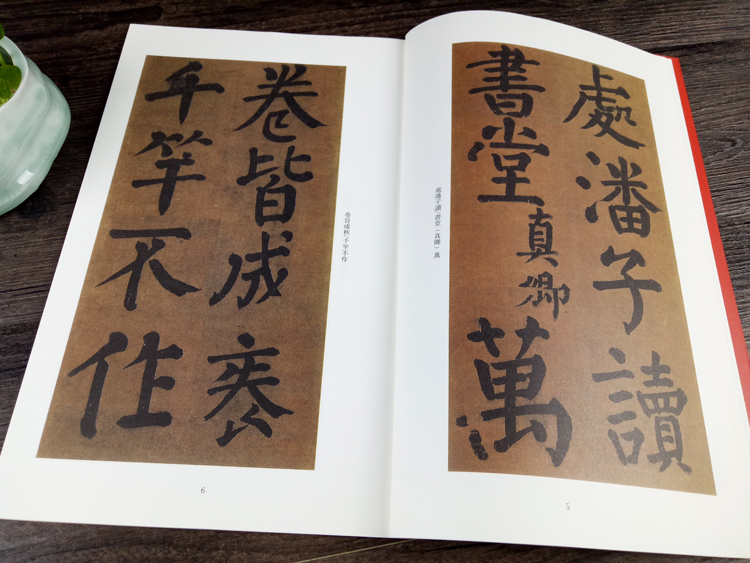 處潘子讀
書堂真卿萬
處潘子讀 書堂（真卿）萬
5
卷皆成袠
千竿不作
卷皆成帙 千竿不作
6